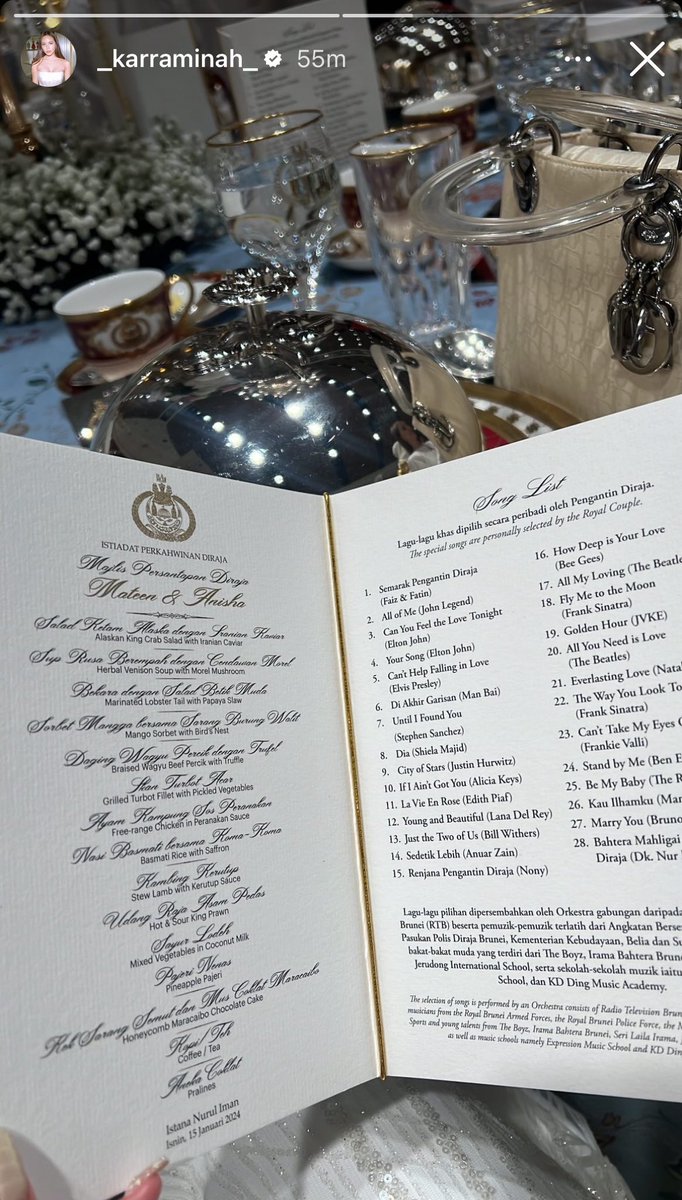 _karraminah_ 55m
ISTIADAT PERKAHWINAN DIRAJA
Majlis Persantapan Diraja
Mateen & Anisha
Salad Ketam Alaska dengan Iranian Kaviar
Alaskan King Crab Salad with Iranian Caviar
Sup Rusa Berempah dengan Cendawan Morel
Herbal Venison Soup with Morel Mushroom
Bekara dengan Salad Betik Muda
Marinated Lobster Tail with Papaya Slaw
Sorbet Mangga bersama Sarang Burung Walit
Mango Sorbet with Bird's Nest
Daging Wagyu Percik dengan Trufel
Braised Wagyu Beef Percik with Truffle
Ikan Turbot Acar
Grilled Turbot Fillet with Pickled Vegetables
Ayam Kampung Sos Peranakan
Free-range Chicken in Peranakan Sauce
Nasi Basmati bersama Koma-Koma
Basmati Rice with Saffron
Kambing Kerutup
Stew Lamb with Kerutup Sauce
Udang Raja Asam Pedas
Hot & Sour King Prawn
Sayur Lodeh
Mixed Vegetables in Coconut Milk
Pajeri Nenas
Pineapple Pajeri
Kek Sarang Semut dan Mus Coklat Maracaibo
Honeycomb Maracaibo Chocolate Cake
Kopi / Teh
Coffee / Tea
Aneka Coklat
Pralines
Istana Nurul Iman
Isnin, 15 Januari 2024
Song List
Lagu-lagu khas dipilih secara peribadi oleh Pengantin Diraja.
The special songs are personally selected by the Royal Couple.
1. Semarak Pengantin Diraja
(Faiz & Fatin)
2. All of Me (John Legend)
3. Can You Feel the Love Tonight
(Elton John)
4. Your Song (Elton John)
5. Can't Help Falling in Love
(Elvis Presley)
6. Di Akhir Garisan (Man Bai)
7. Until I Found You
(Stephen Sanchez)
8. Dia (Shiela Majid)
9. City of Stars (Justin Hurwitz)
10. If I Ain't Got You (Alicia Keys)
11. La Vie En Rose (Edith Piaf)
12. Young and Beautiful (Lana Del Rey)
13. Just the Two of Us (Bill Withers)
14. Sedetik Lebih (Anuar Zain)
15. Renjana Pengantin Diraja (Nony)
16. How Deep is Your Love
(Bee Gees)
17. All My Loving (The Beatle
18. Fly Me to the Moon
(Frank Sinatra)
19. Golden Hour (JVKE)
20. All You Need is Love
(The Beatles)
21. Everlasting Love (Nata
22. The Way You Look To
(Frank Sinatra)
23. Can't Take My Eyes O
(Frankie Valli)
24. Stand by Me (Ben E
25. Be My Baby (The R
26. Kau Ilhamku (Man
27. Marry You (Bruno
28. Bahtera Mahligai
Diraja (Dk. Nur
Lagu-lagu pilihan dipersembahkan oleh Orkestra gabungan daripada
Brunei (RTB) beserta pemuzik-pemuzik terlatih dari Angkatan Berse
Pasukan Polis Diraja Brunei, Kementerian Kebudayaan, Belia dan Su
bakat-bakat muda yang terdiri dari The Boyz, Irama Bahtera Brune
Jerudong International School, serta sekolah-sekolah muzik iaitu
School, dan KD Ding Music Academy.
The selection of songs is performed by an Orchestra consists of Radio Television Brun
musicians from the Royal Brunei Armed Forces, the Royal Brunei Police Force, the M
Sports and young talents from The Boyz, Irama Bahtera Brunei, Seri Laila Irama,
as well as music schools namely Expression Music School and KD Din